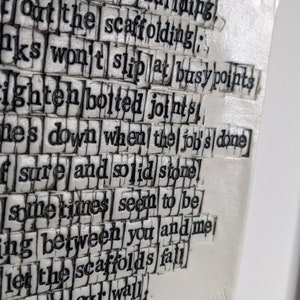 out the scaffolding;
won't slip at busy points
bolted joints
down when the job's done
sure and solid stone
sometimes seem to be
between you and me
let the scaffolds fall
our wall.